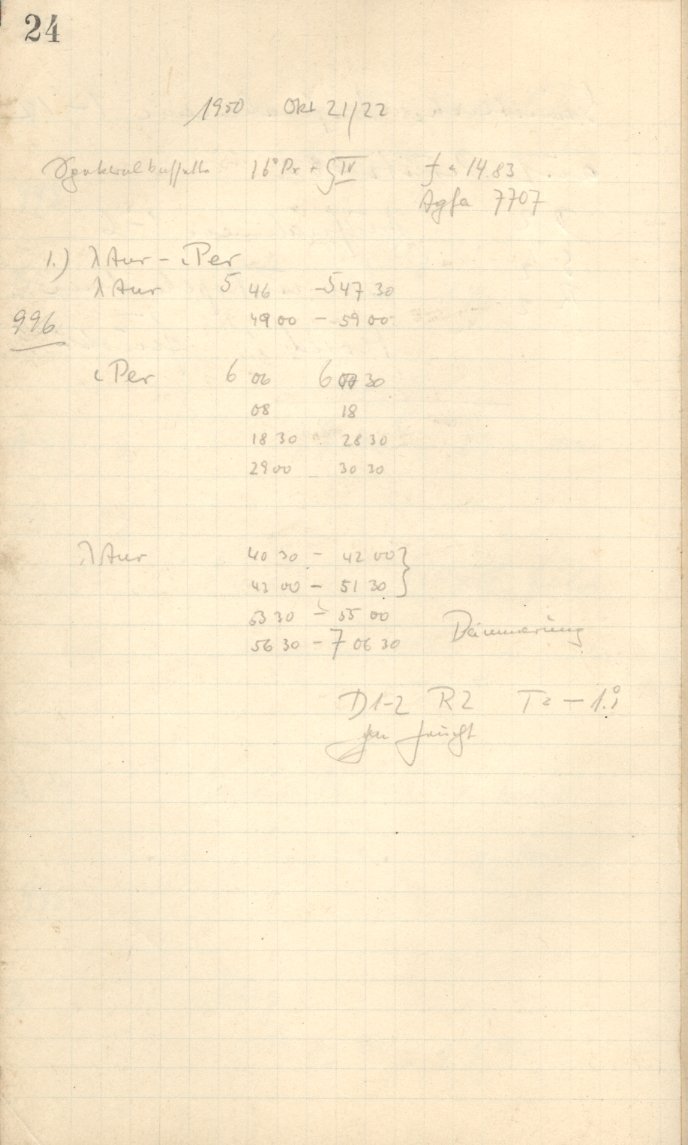 24
1950 Okt 21/22
16° Pr + IV f = 14.83
Agfa 7707
1.) λ Aur - ι Per
λ Aur 5 46 - 5 47 30
49 00 - 59 00
996
ι Per 6 06 6 07 30
08 18
18 30 28 30
29 00 30 30
λ Aur 40 30 - 42 00 }
42 00 - 51 30 }
53 30 - 55 00
56 30 - 7 06 30 Dämmerung
D1-2 R2 T = -1.°1
feucht